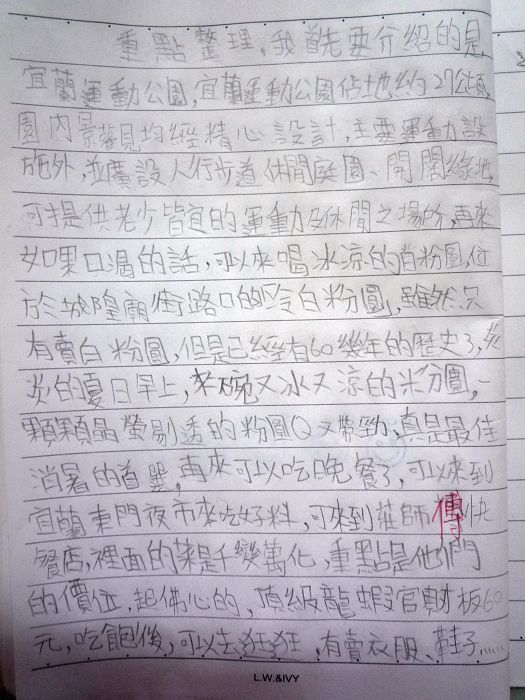 重點整理,我首先要介紹的是
宜蘭運動公園,宜蘭運動公園佔地約27公頃,
園內景觀均經精心設計,主要運動設
施外,並廣設人行步道、休閒庭園、開闊綠地,
可提供老少皆宜的運動及休閒之場所,再來
如果口渴的話,可以來喝冰涼的白粉圓,位
於城隍廟街路口的冷白粉圓,雖然只
有賣白粉圓,但是已經有60幾年的歷史了,炎
炎的夏日早上,來碗又冰又涼的粉圓,一
顆顆晶瑩剔透的粉圓Q又帶勁、真是最佳
消暑的首選,再來可以吃晚餐了,可以來到
宜蘭東門夜市來吃好料,可來到莊師傅快
餐店,裡面的菜是千變萬化,重點是他們
的價位,起佛心的,頂級龍蝦官財板60
元,吃飽後,可以去狂狂,有賣衣服、鞋子……
L.W.&IVY